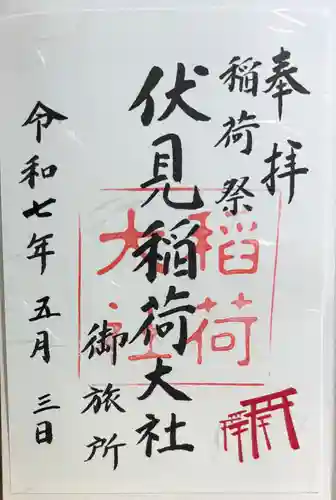 奉拝
稲荷祭
伏見稲荷大社
御旅所
令和七年五月三日
稲荷
大社